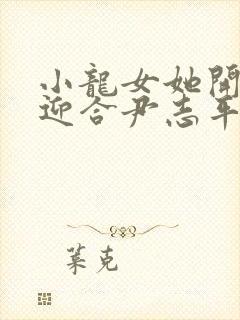 小龍女她開
迎合尹志平
葉克